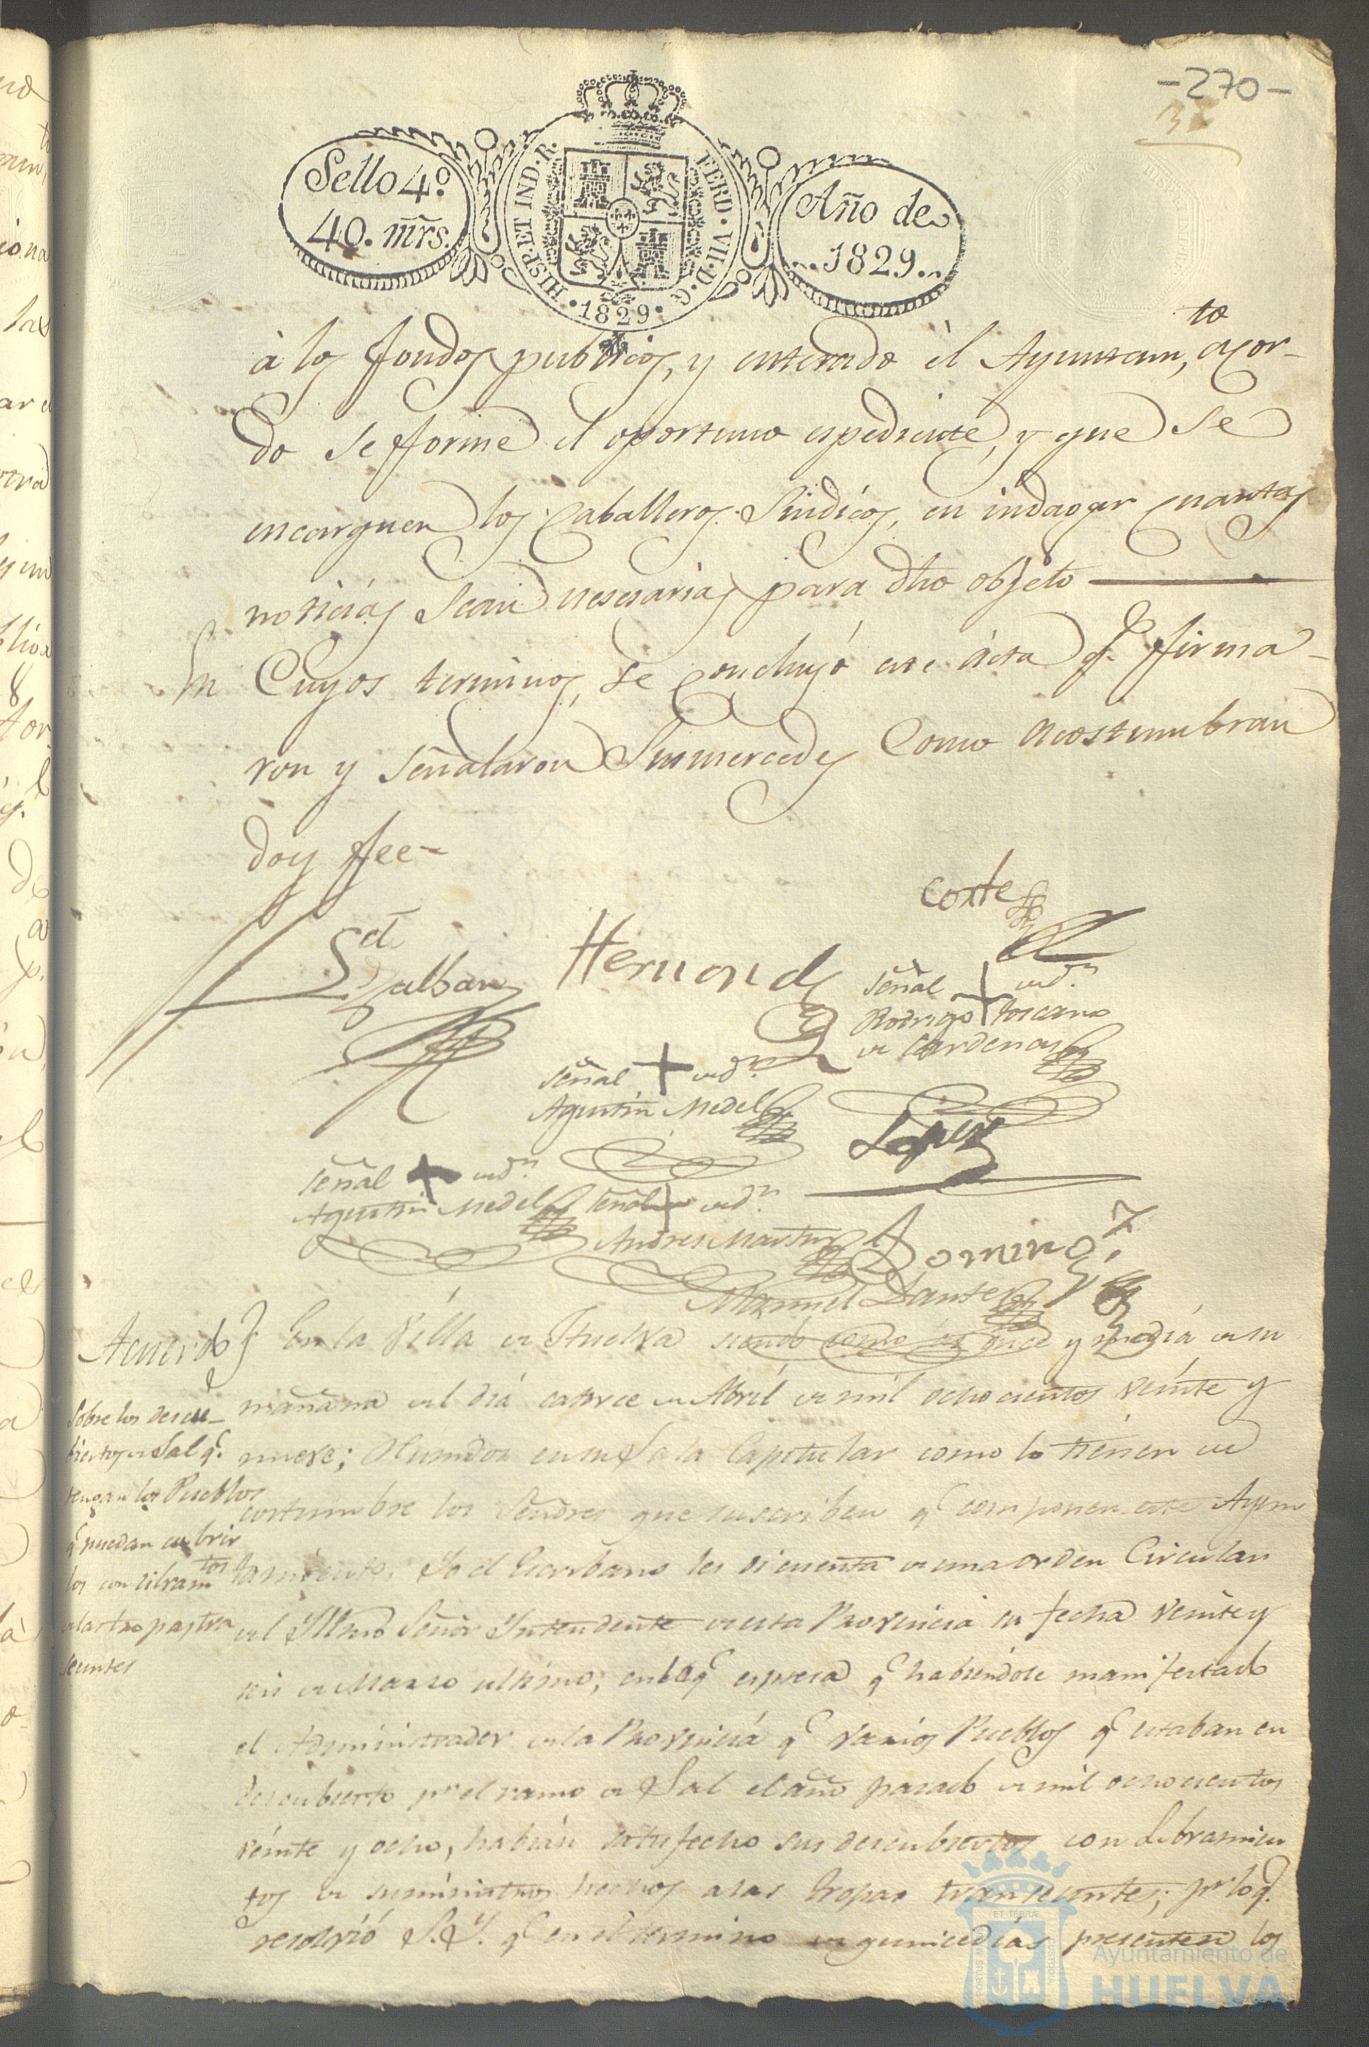 -270-
3
Sello 4º
40. mrs.
HISP. ET IND. R.
FERD. VII. D. G.
1829
Año de
1829.
à los fondos publicos, y enterado el Ayuntam,to acor-
do se forme el oportuno espediente, y que se
encarguen los Caballeros Sindicos, en indagar cuantas
noticias sean nesesarias para dho objeto
En Cuyos terminos, se concluyó este Acta q.e firma-
ron y señalaron Sus mercedes Como acostumbran
doy fee-
Galban
Cortes
Hernandz
Señal + de dn
Rodrigo Toscano
de Cardenas
Señal + de dn
Agustin Medel
Lopez
Señal + de dn
Agustin Medel
Señal + de dn
Andres Martin
Domingz
Manuel Dante
Acuerdo
Sobre los descu-
biertos de Sal q.e
tengan los Pueblos
q.e puedan cubrir
los con libramtos
a las tropas tra
seuntes
En la Villa de Huelva siendo como las once y media de su
mañana del dia catorce de Abril de mil ochocientos veinte y
nueve; Reunidos en su Sala Capitular como lo tienen de
costumbre los Señores que suscriben q.e componen este Ayun
tamiento, Yo el Escribano les di cuenta de una orden Circular
del Illmo Señor Yntendente de esta Provincia su fecha veinte y
seis de Marzo ultimo; en la q.e espresa q.e habiendole manifestado
el Administrador de la Provincia q.e varios Pueblos q.e estaban en
descubierto pr el ramo de Sal el año pasado de mil ochocientos
veinte y ocho, habian satisfecho sus descubiertos con Libramien
tos de suministros hechos a las tropas transeuntes; pr lo q.e
resolvió S.Y. q.e en el termino de quince dias presenten los
ET TERRÆ
Ayuntamiento de
HUELVA